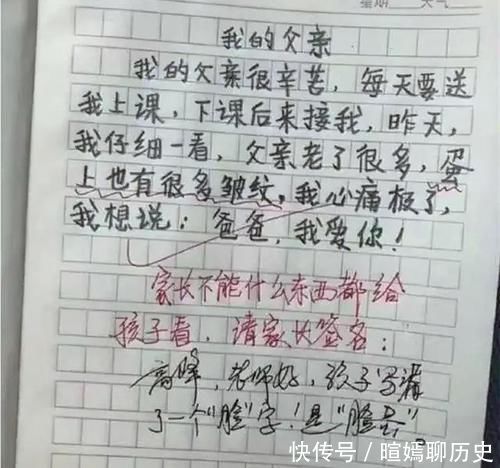 星期 天气
我的父亲
我的父亲很辛苦，每天要送
我上课，下课后来接我，昨天，
我仔细一看，父亲老了很多，蛋
上也有很多皱纹，我心痛极了，
我想说：爸爸，我爱你！
家长不能什么东西都给
孩子看，请家长签名：
高峰，老师好，孩子写漏
了一个"脸"字！是"脸蛋"
快传号/暄嫣聊历史